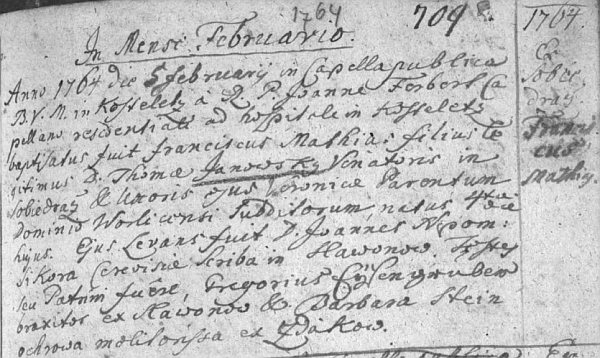 1764
709
1764.
In Mense Februario.
Anno 1764 die 5 februarij in Capella publica
B. V. M. in Kosteletz à R. P. Joanne Forbert Ca
pellano residentiali ad hospitale in Kosteletz
baptisatus fuit franciscus Mathias filius le
gitimus D. Thomæ Janowsky Venatoris in
Sobiedraz & Uxoris ejus Veronicæ Parentum
Dominio Worlicensi Subditorum, natus 4ta
hujus. Ejus Levans fuit D. Joannes Nepom:
Sikora Cerevisiæ scriba in Klawonow. Testes
seu Patrini fuêre, Gregorius
ex Klawonow & Barbara Stein
ochrowa molitorissa ex Zdakow.
Ex
Sobie
draz
Francis
cus
Mathias.